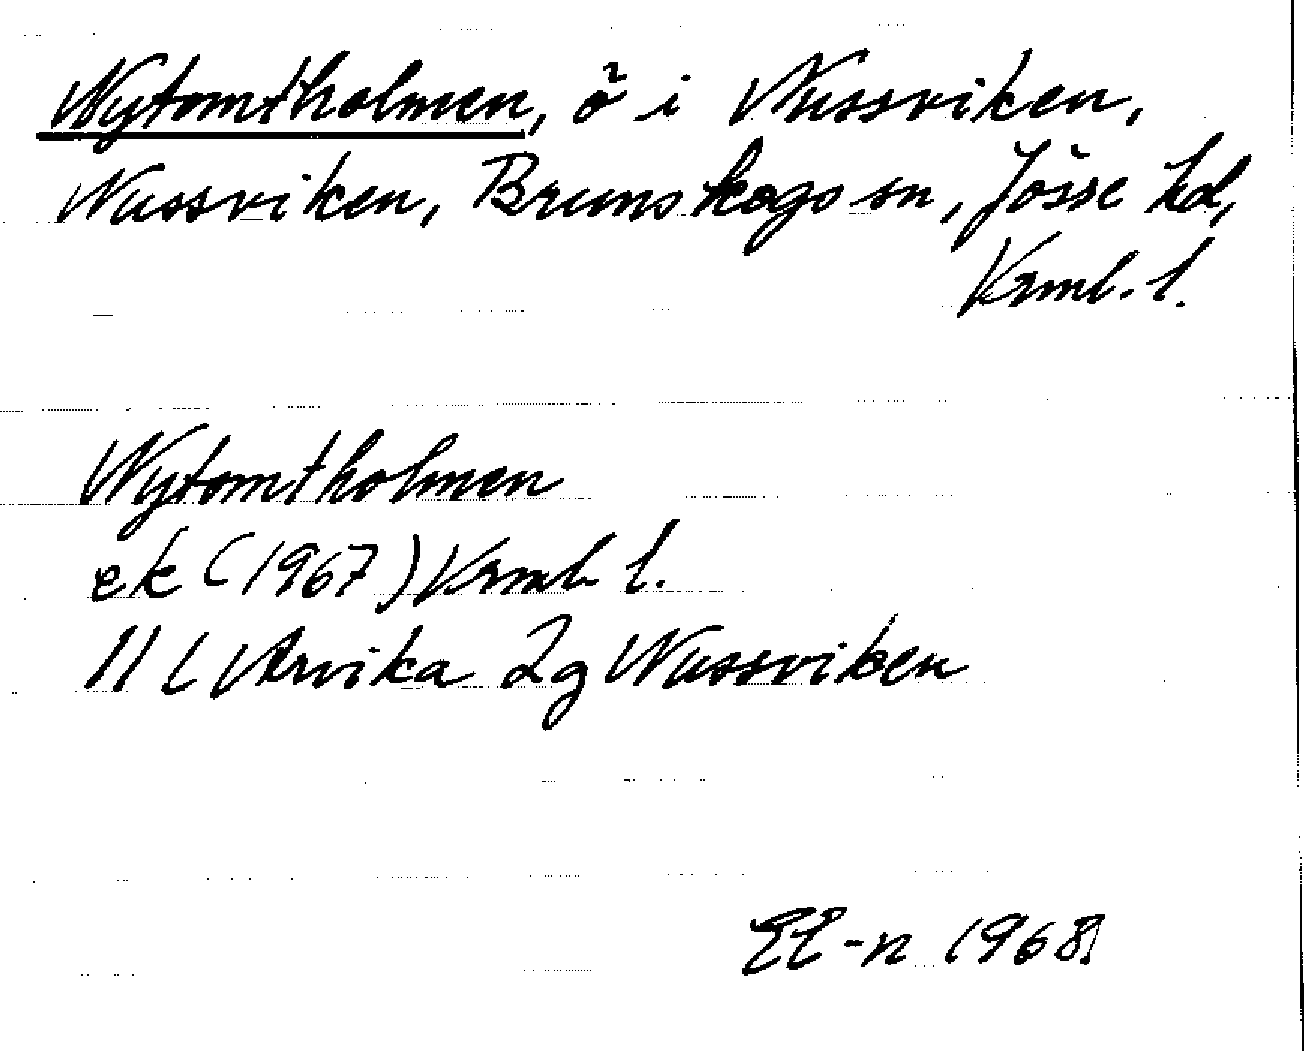 Nytomtholmen, ö i Nussviken,
Nussviken, Brunskogs sn, Jösse hd,
Vrml. l.
Nytomtholmen
ek (1967) Vrml l.
11 C Arvika 2g Nussviken
EE-n 1968